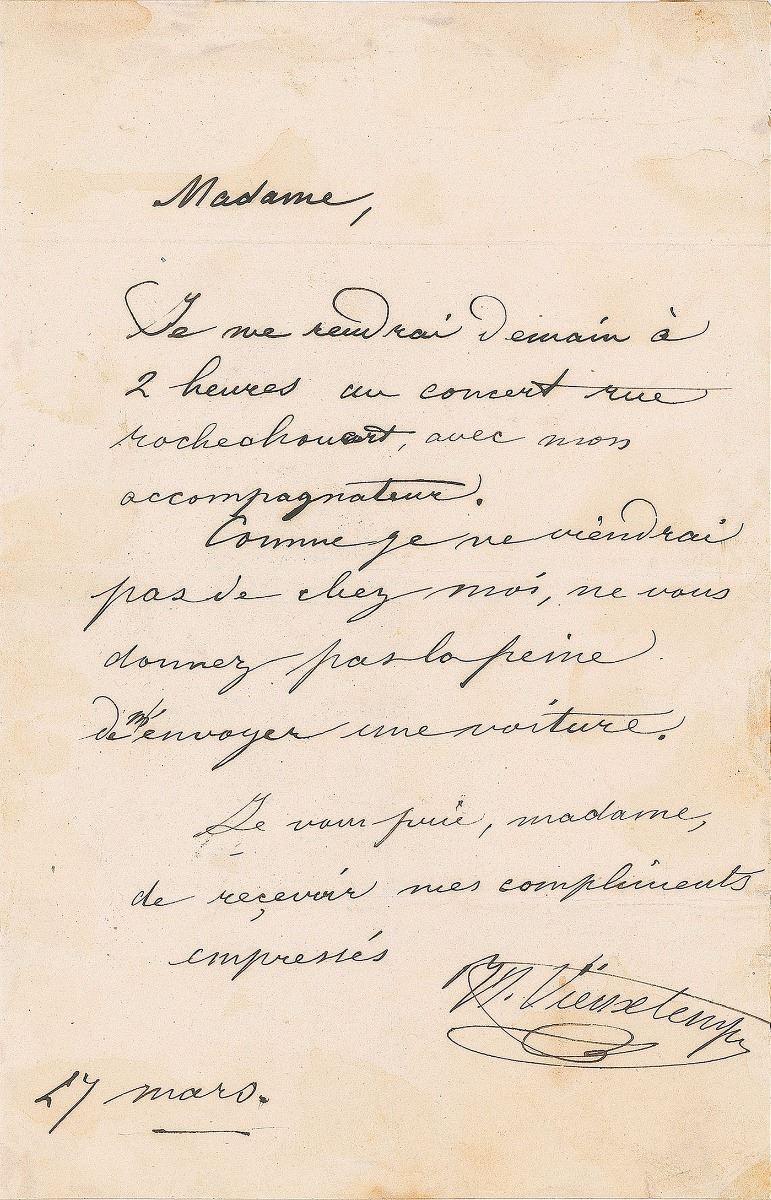 Madame,
Je me rendrai demain à
2 heures au concert rue
rochechouart, avec mon
accompagnateur.
Comme je ne viendrai
pas de chez moi, ne vous
donnez pas la peine
de m'envoyer une voiture.
Je vous prie, madame,
de reçevoir mes compliments
empressés
H. Vieuxtemps
27 mars.